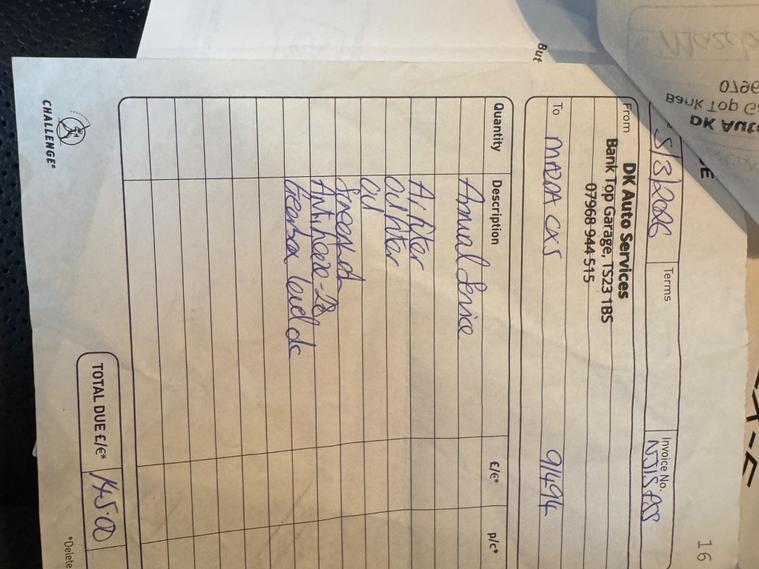 16
5/3/2026
Terms
Invoice No.
NJ15
From
DK Auto Services
Bank Top Garage, TS23 1BS
07968 944 515
To MAZDA CX5 91494
Quantity Description £/€* p/c*
Annual Service
Air filter
Oil filter
Oil
Screenwash
Antifreeze -28
Gearbox level ok
TOTAL DUE £/€* 145.00
*Delete
CHALLENGE®
But
0796
Bank Top Ga
DK Auto